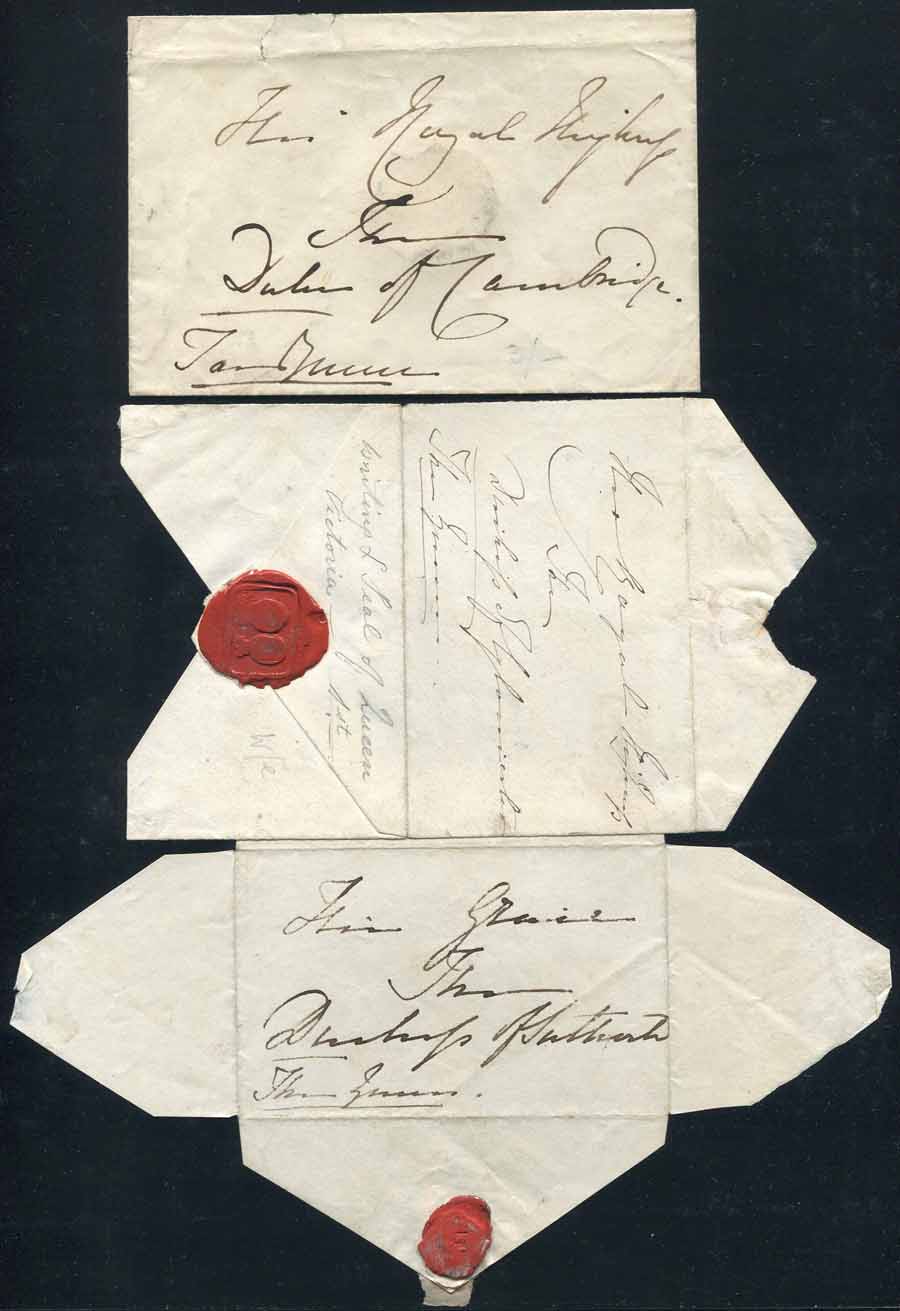 His Royal Highness
The
Duke of Cambridge.
The Queen
Her Royal Highness
The
Duchess of Gloucester
The Queen
Writing & Seal of Queen
Victoria 1st
Her Grace
The
Duchess of Sutherla
The Queen.